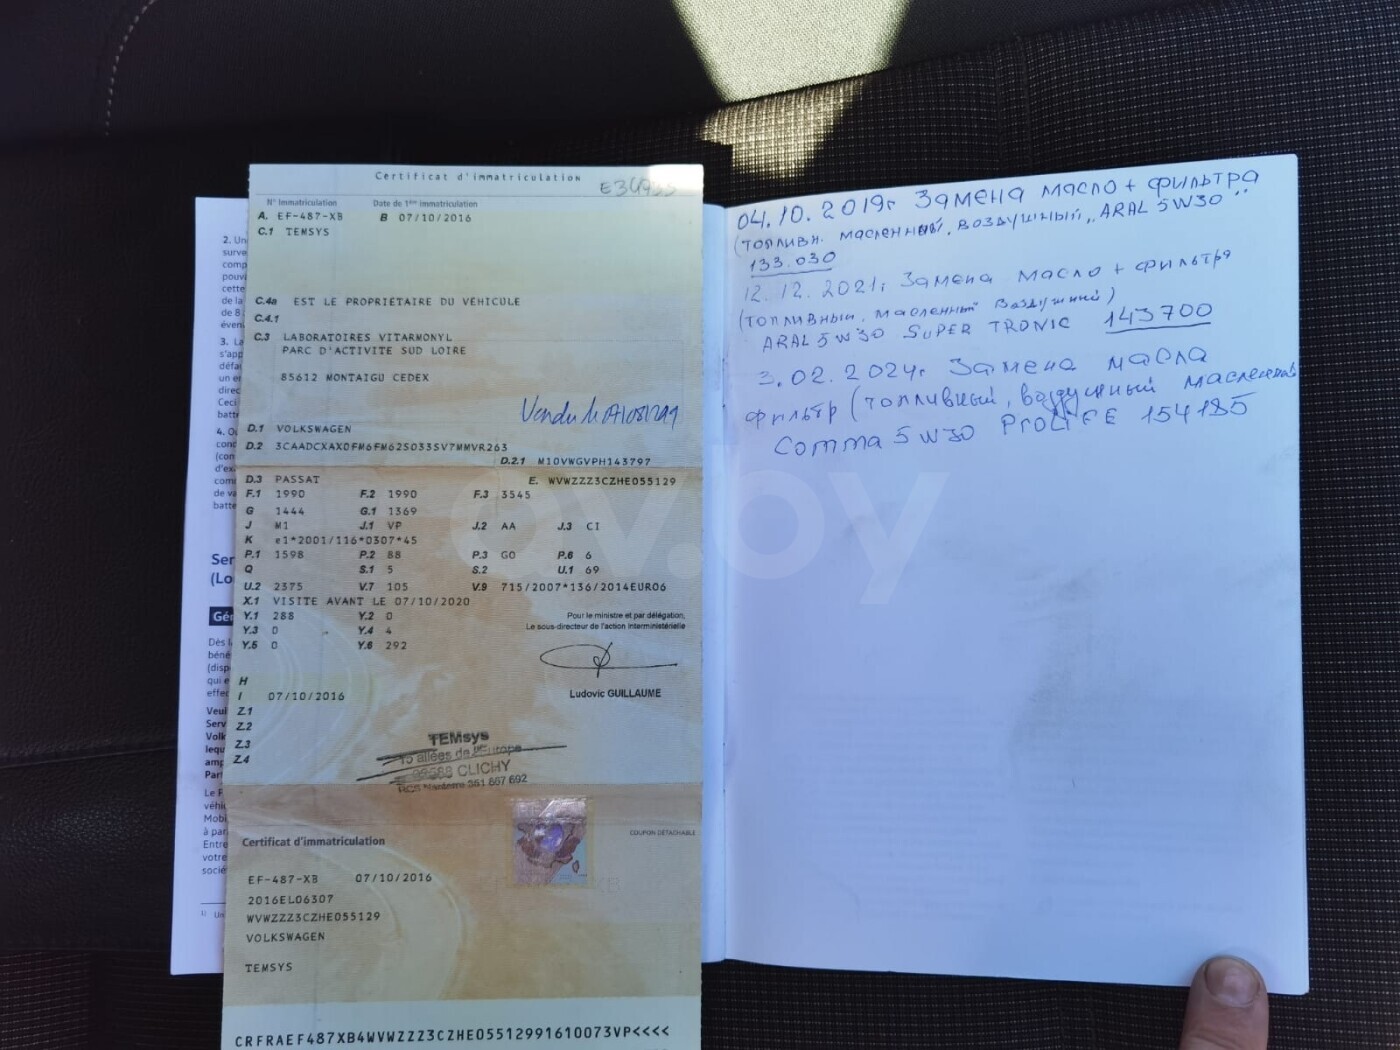 Certificat d'immatriculation
N° Immatriculation
Date de 1ère immatriculation
A. EF-487-XB
B 07/10/2016
C.1 TEMSYS
C.4a EST LE PROPRIÉTAIRE DU VÉHICULE
C.4.1
C.3 LABORATOIRES VITARMONYL
PARC D'ACTIVITE SUD LOIRE
85612 MONTAIGU CEDEX
D.1 VOLKSWAGEN
D.2 3CAADCXAX0FM6FM62S033SV7MMVR263
D.2.1 M10VWGVPH143797
D.3 PASSAT
E. WVWZZZ3CZHE055129
F.1 1990 F.2 1990 F.3 3545
G 1444 G.1 1369
J M1 J.1 VP J.2 AA J.3 CI
K e1*2001/116*0307*45
P.1 1598 P.2 88 P.3 GO P.6 6
Q S.1 5 S.2 U.1 69
U.2 2375 V.7 105 V.9 715/2007*136/2014EURO6
X.1 VISITE AVANT LE 07/10/2020
Y.1 288 Y.2 0
Y.3 0 Y.4 4
Y.5 0 Y.6 292
Pour le ministre et par délégation,
Le sous-directeur de l'action interministérielle
Ludovic GUILLAUME
H
I 07/10/2016
Z.1
Z.2
Z.3
Z.4
TEMsys
15 allées de l'Europe
CLICHY
RCS Nanterre 351 867 692
Certificat d'immatriculation
COUPON DÉTACHABLE
EF-487-XB 07/10/2016
2016EL06307
WVWZZZ3CZHE055129
VOLKSWAGEN
TEMSYS
CRFRAEF487XB4WVWZZZ3CZHE05512991610073VP<<<<
04.10.2019г Замена масло + фильтра
(топливн. масленный, воздушный „ARAL 5W30"
133.030
12.12.2021г Замена масло + фильтра
(топливный, масленный воздушний)
ARAL 5W30 SUPER TRONIC 143700
3.02.2024г Замена масла
фильтр (топливный, воздушный масленный
Comma 5W30 PROLIFE 154185
av.by